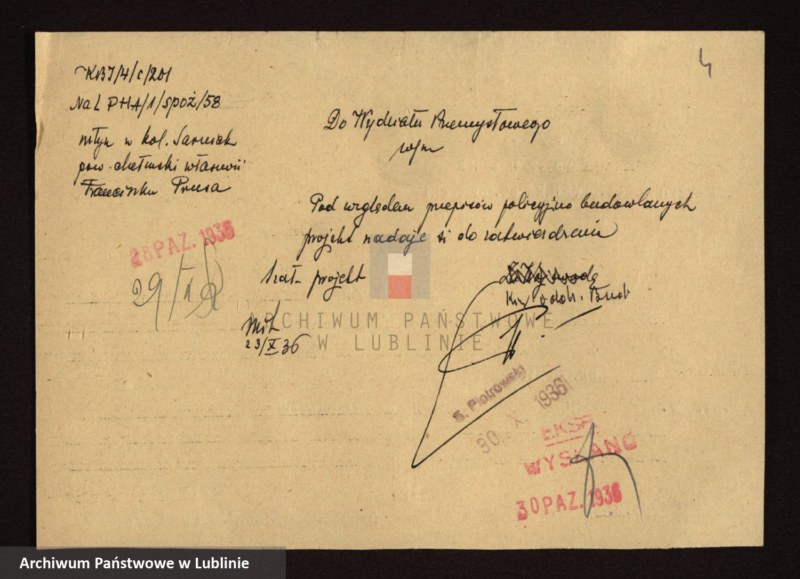 4
KBJ/4/c/201
Na L PHA/1/spoż/58
młyn w kol. Sarniak
pow. chełmski własność
Franciszka Prusa
Do Wydziału Przemysłowego
wjm
Pod względem przepisów policyjno budowlanych
projekt nadaje się do zatwierdzenia
28 PAZ. 1936
29/X
1 zał. projekt
Za Wojewodę
Kier. oddz. Bud.
23/X 36
ARCHIWUM PAŃSTWOWE
W LUBLINIE
S. Piotrowski
30. X. 1936
EKSP
WYSŁANO
30 PAZ. 1936
Archiwum Państwowe w Lublinie